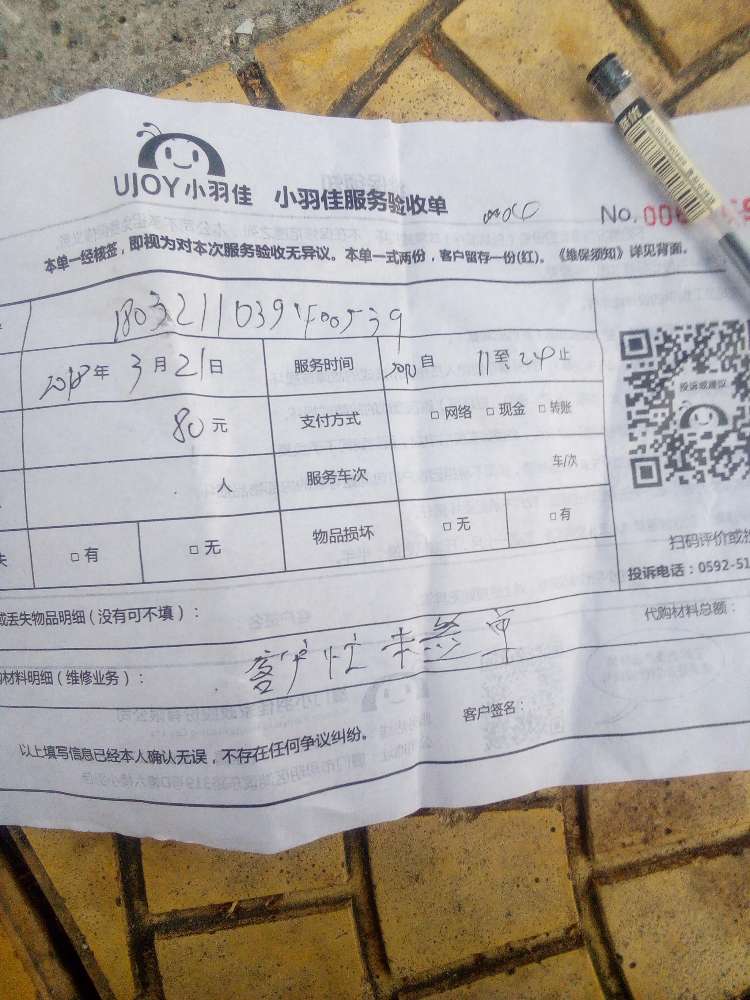 UJOY小羽佳 小羽佳服务验收单
No.
本单一经核签，即视为对本次服务验收无异议。本单一式两份，客户留存一份(红)。《维保须知》详见背面。
2018年 3月21日 服务时间 自 11至24止
80元 支付方式 □ 网络 □ 现金 □ 转账
人 服务车次 车/次
□ 有 □ 无 物品损坏 □ 无 □ 有
投诉或建议
扫码评价或
投诉电话：0592-51
或丢失物品明细（没有可不填）：
代购材料总额：
材料明细（维修业务）：
客户忙未签单
客户签名：
以上填写信息已经本人确认无误，不存在任何争议纠纷。